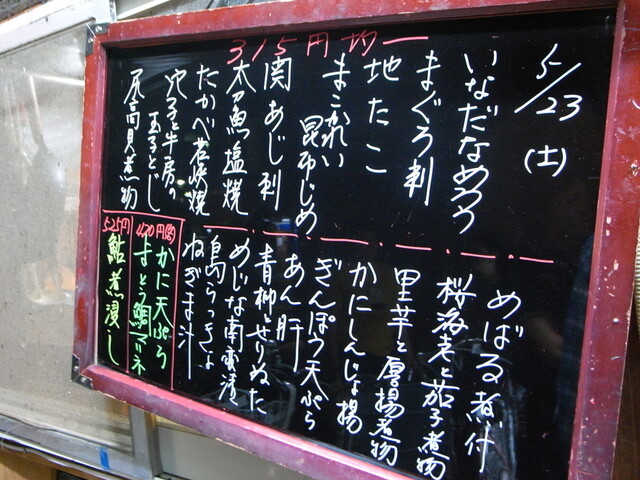 5/23
(土)
315円均一
いなだなめろう
まぐろ刺
地たこ
まこかれい
昆布じめ
関あじ刺
太刀魚塩焼
たかべ若狭焼
穴子と牛房の
玉子とじ
尾高貝煮物
めばる煮付
桜海老と茄子煮物
里芋と厚揚煮物
かにしんじょ揚
ぎんぽう天ぷら
あん肝
青柳とせりぬた
めじな南蛮漬
島らっきょ
ねぎま汁
420円
かに天ぷら
まとう鯛マリネ
525円
鮎煮浸し